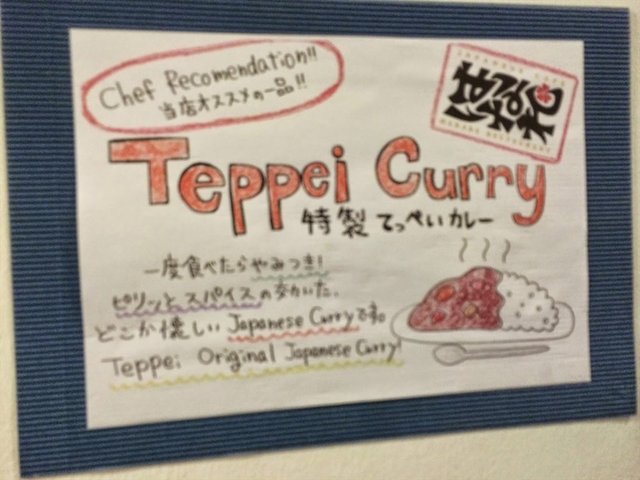 Chef Recomendation!!
当店オススメの一品!!
JAPANESE CAFE
はなれ
HANARE RESTAURANT
Teppei Curry
特製 てっぺいカレー
一度食べたらやみつき!
ピリッとスパイスの効いた、
どこか懐しい Japanese Curryです。
Teppei Original Japanese Curry!